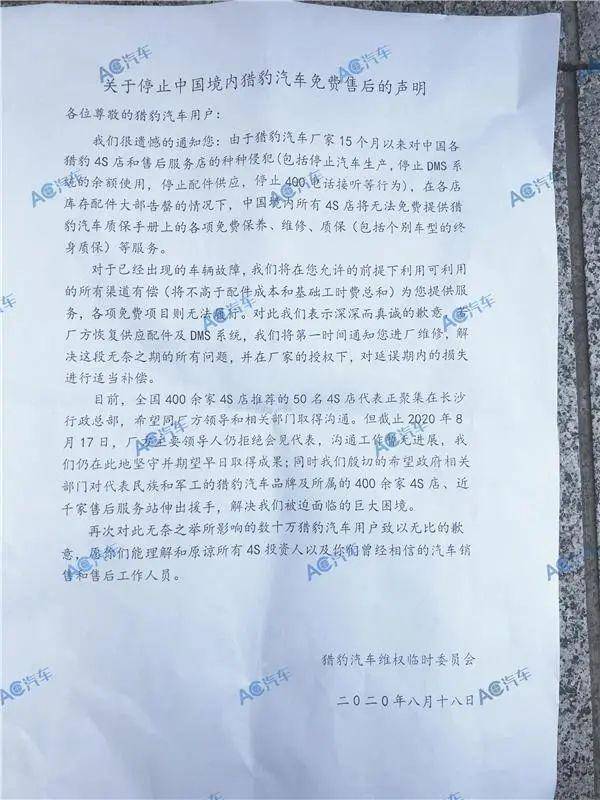 关于停止中国境内猎豹汽车免费售后的声明
各位尊敬的猎豹汽车用户：
我们很遗憾的通知您：由于猎豹汽车厂家15个月以来对中国各
猎豹4S店和售后服务店的种种侵犯(包括停止汽车生产，停止DMS系
统的余额使用，停止配件供应，停止400电话接听等行为)，在各店
库存配件大部告罄的情况下，中国境内所有4S店将无法免费提供猎
豹汽车质保手册上的各项免费保养、维修、质保（包括个别车型的终
身质保）等服务。
对于已经出现的车辆故障，我们将在您允许的前提下利用可利用
的所有渠道有偿（将不高于配件成本和基础工时费总和）为您提供服
务，各项免费项目则无法履行。对此我们表示深深而真诚的歉意。若
厂方恢复供应配件及DMS系统，我们将第一时间通知您进厂维修，解
决这段无奈之期的所有问题，并在厂家的授权下，对延误期内的损失
进行适当补偿。
目前，全国400余家4S店推荐的50名4S店代表正聚集在长沙
行政总部，希望同厂方领导和相关部门取得沟通。但截止2020年8
月17日，厂方主要领导人仍拒绝会见代表，沟通工作暂无进展，我
们仍在此地坚守并期望早日取得成果；同时我们殷切的希望政府相关
部门对代表民族和军工的猎豹汽车品牌及所属的400余家4S店、近
千家售后服务站伸出援手，解决我们被迫面临的巨大困境。
再次对此无奈之举所影响的数十万猎豹汽车用户致以无比的歉
意，愿你们能理解和原谅所有4S投资人以及你们曾经相信的汽车销
售和售后工作人员。
猎豹汽车维权临时委员会
二〇二〇年八月十八日
AC汽车